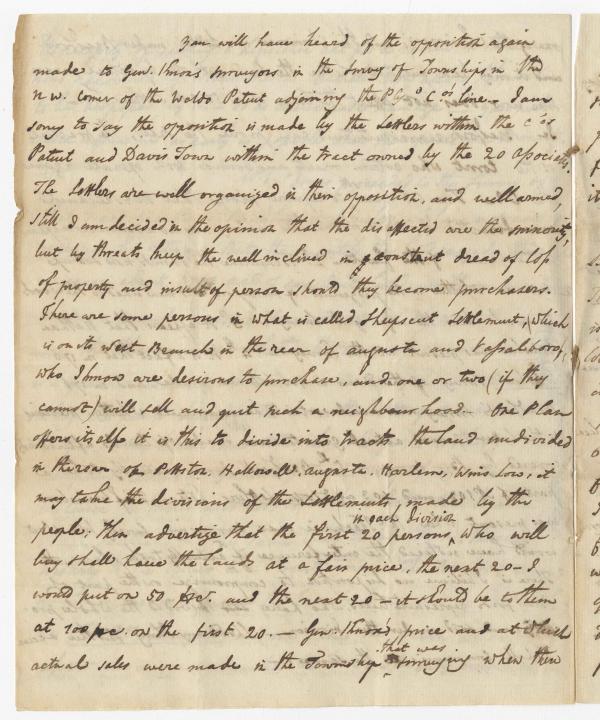 you will have heard of the opposition again
made to Genl. Knox's surveyors in the survey of Townships in the
N W. corner of the Waldo Patent adjoining the P Co line - I am
sorry to say the opposition is made by the Settlers within the Cos
Patent and Davis Town within the tract owned by the 20 associates.
The Settlers are well organized in their opposition, and well armed,
still I am decided in the opinion that the disaffected are the minority,
but by threats keep the well inclined in constant dread of loss
of property and insult of person should they become purchasers.
There are some persons in what is called Sheepscut Settlement, which
is on its West Branch in the rear of augusta and Vassalboro,
who I know are desirous to purchase, and one or two (if they
cannot) will sell and quit such a neighbourhood.. One Plan
offers itselfe it is this to divide into tracts the land undivided
in the rear of Pittston, Hallowell, augusta, Harlem, Winslow, it
may take the divisions of the Settlements made by the
people; then advertize that the first 20 persons in each division who will
buy shall have the lands at a fair price, the next 20 - I
would put on 50 prc. and the next 20 - it should be to them
at 100 prc on the first 20. - Genl. Knox's price and at which
actual sales were made in the Township that was surveying when their